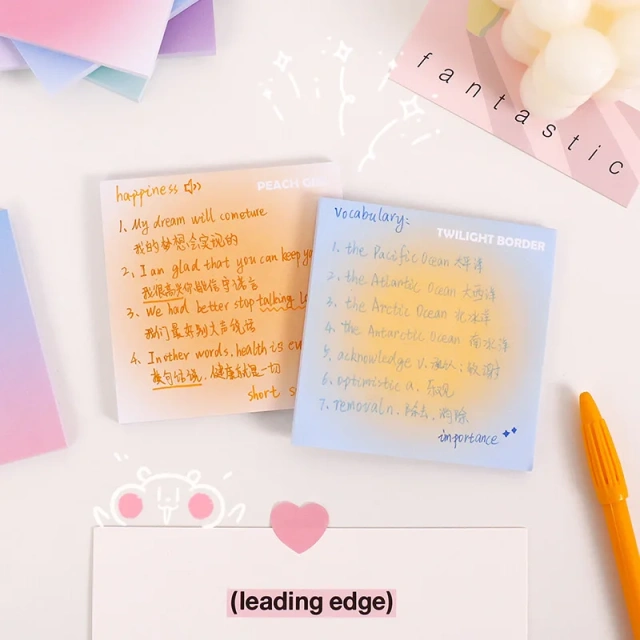 fantastic
happiness
PEACH
1. My dream will cometure
我的梦想会实现的
2, I am glad that you can keep yo
我很高兴你能信守诺言
3. We had better stop talking
我们最好别大声说话
4. In other words, health is ev
换句话说,健康就是一切
short s
Vocabulary:
TWILIGHT BORDER
1. the Pacific Ocean 太平洋
2. the Atlantic Ocean 大西洋
3. the Arctic Ocean 北冰洋
4. the Antarctic Ocean 南冰洋
5. acknowledge v. 承认;致谢
6. optimistic a. 乐观
7. removal n. 除去、消除
importance
(leading edge)